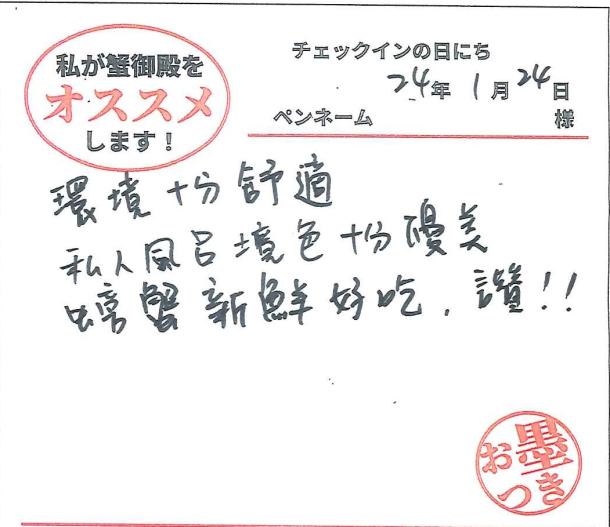 私が蟹御殿を
オススメ
します！
チェックインの日にち
24年 1月24日
ペンネーム 様
環境十分舒適
私人風呂境色十分優美
螃蟹新鮮好吃，讚!!
お墨
つき